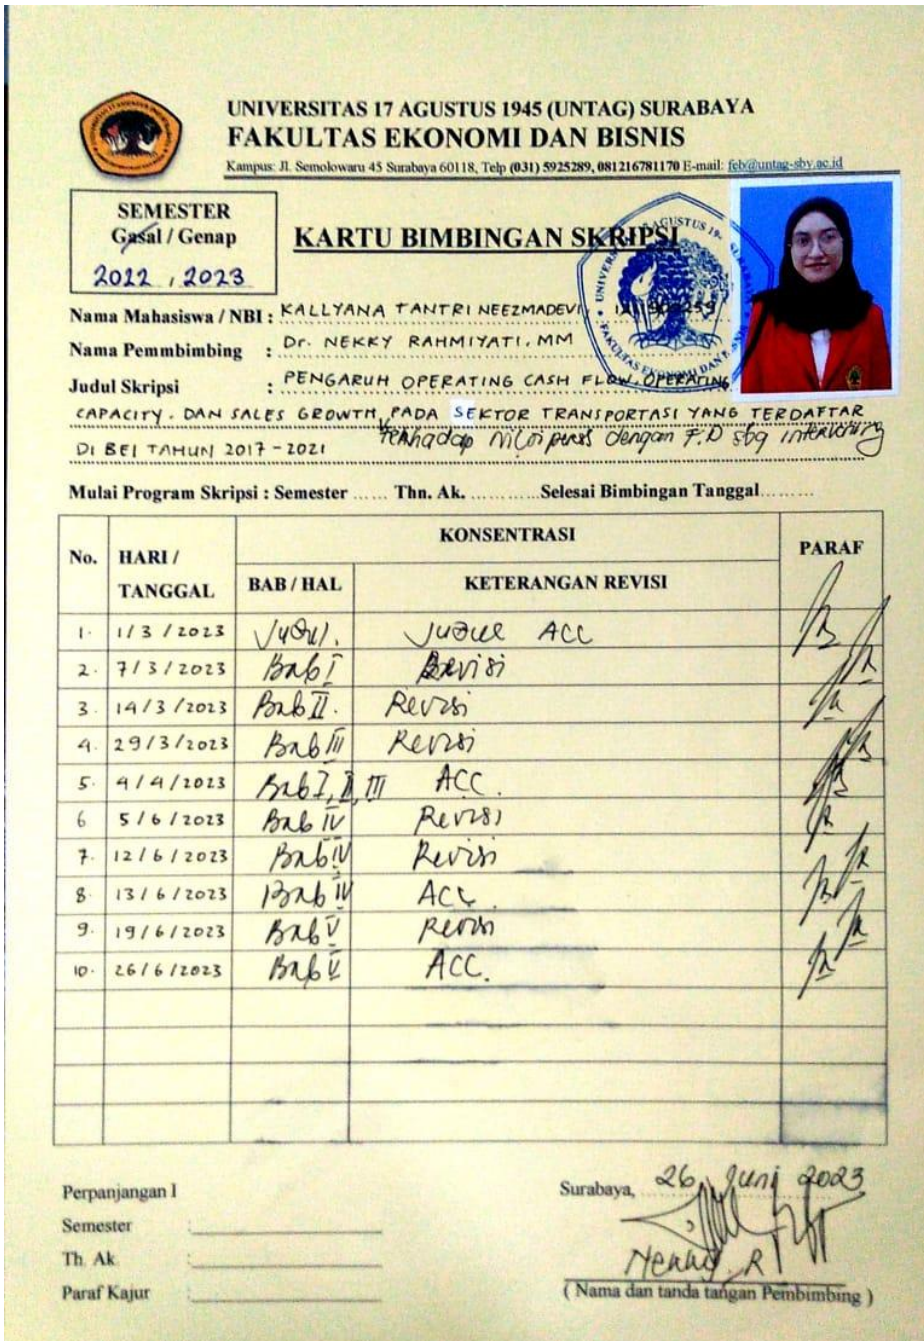 UNIVERSITAS 17 AGUSTUS 1945 (UNTAG) SURABAYA
FAKULTAS EKONOMI DAN BISNIS
Kampus: Jl. Semolowaru 45 Surabaya 60118, Telp (031) 5925289, 081216781170 E-mail: feb@untag-sby.ac.id
SEMESTER
Gasal / Genap
2022 / 2023
KARTU BIMBINGAN SKRIPSI
Nama Mahasiswa / NBI : KALLYANA TANTRI NEEZMADEVI
Nama Pemmbimbing : Dr. NEKKY RAHMIYATI, MM
Judul Skripsi : PENGARUH OPERATING CASH FLOW, OPERATING
CAPACITY, DAN SALES GROWTH PADA SEKTOR TRANSPORTASI YANG TERDAFTAR
DI BEI TAHUN 2017 - 2021 terhadap dengan F.D sbg intervening
Mulai Program Skripsi : Semester ...... Thn. Ak. ............Selesai Bimbingan Tanggal.........
No. HARI / TANGGAL KONSENTRASI PARAF
BAB / HAL KETERANGAN REVISI
1. 1/3/2023 Judul. Judul ACC
2. 7/3/2023 Bab I Revisi
3. 14/3/2023 Bab II. Revisi
4. 29/3/2023 Bab III Revisi
5. 4/4/2023 Bab I, II, III ACC.
6 5/6/2023 Bab IV Revisi
7. 12/6/2023 Bab IV Revisi
8. 13/6/2023 Bab IV ACC
9. 19/6/2023 Bab V Revisi
10. 26/6/2023 Bab V ACC.
Perpanjangan I
Surabaya, 26 Juni 2023
Semester :
Th. Ak. :
Paraf Kajur :
Nekky R
( Nama dan tanda tangan Pembimbing )